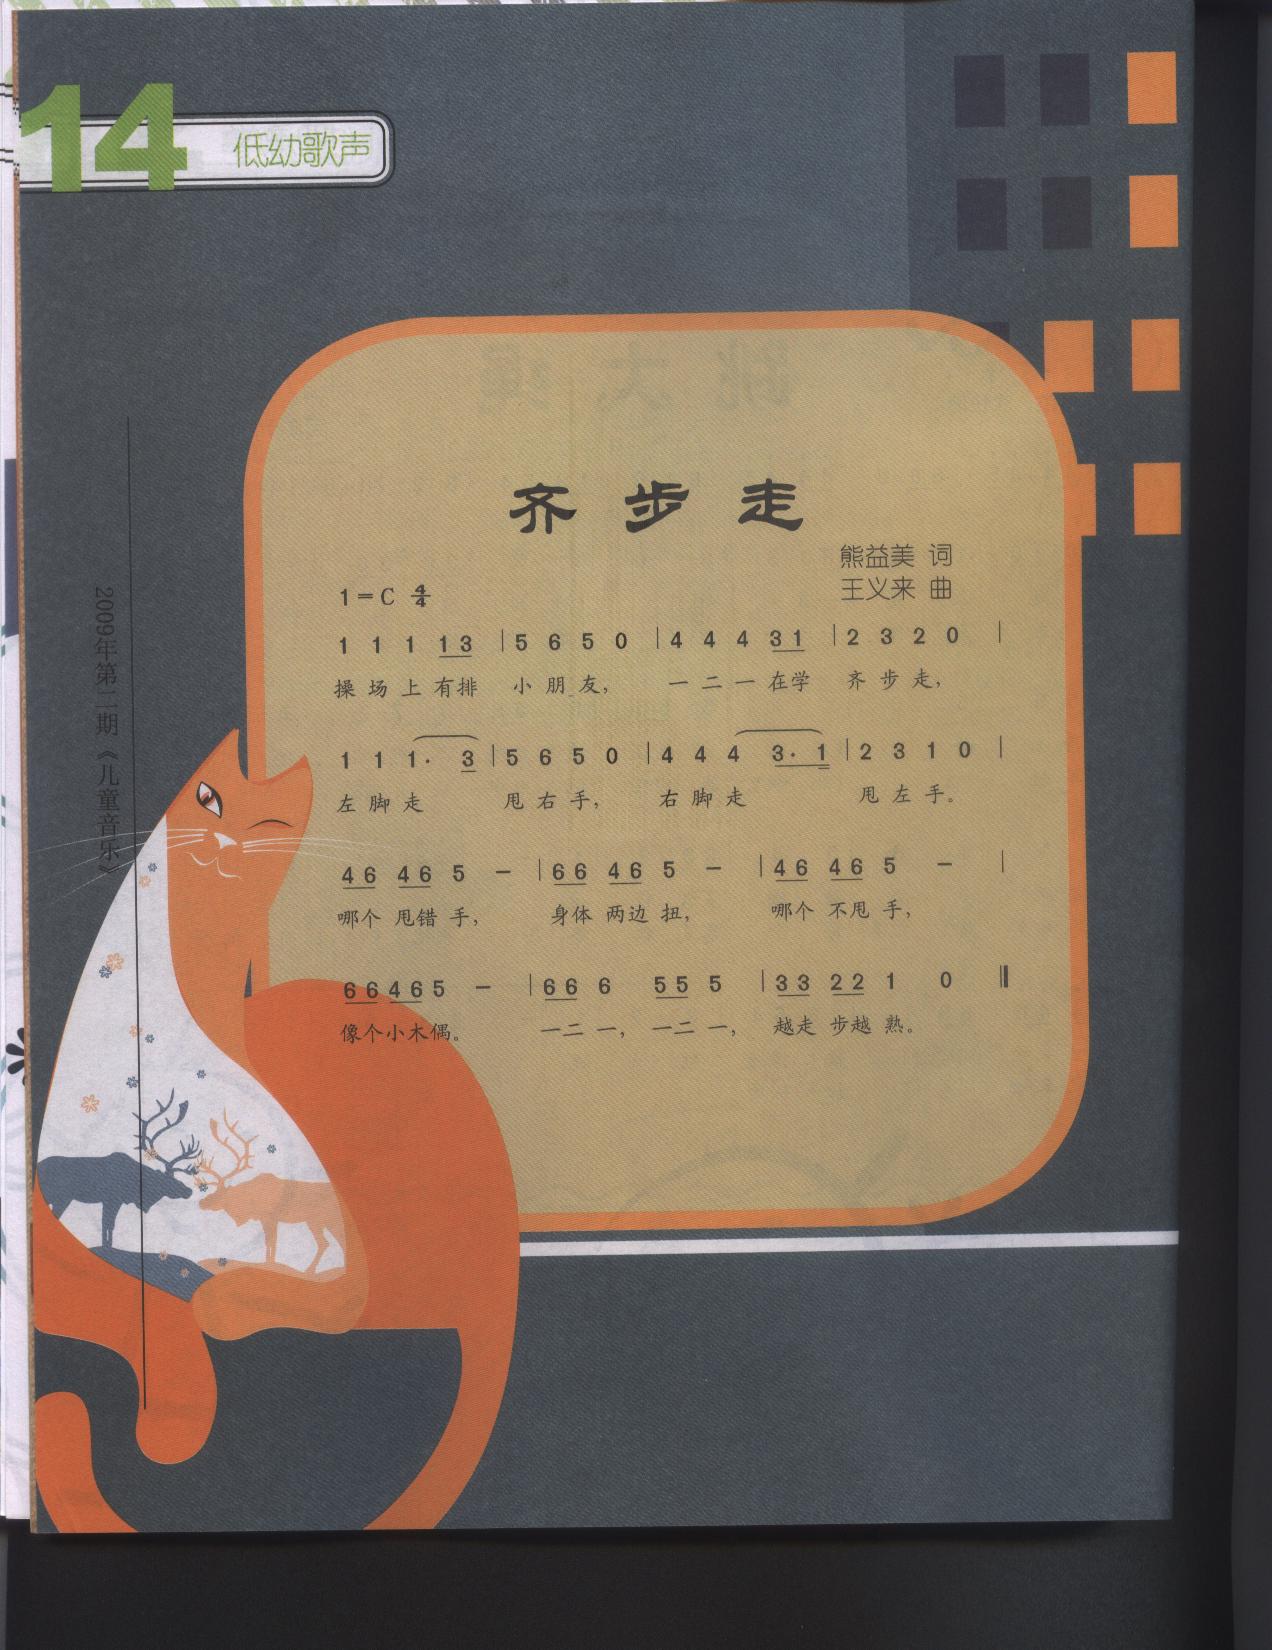 14 低幼歌声
齐步走
熊益美 词
王义来 曲
1=C 4/4
1 1 1 13 | 5 6 5 0 | 4 4 4 31 | 2 3 2 0 |
操 场 上 有排 小 朋 友， 一 二 一 在学 齐 步 走，
1 1 1· 3 | 5 6 5 0 | 4 4 4 3· 1 | 2 3 1 0 |
左 脚 走 甩 右 手， 右 脚 走 甩 左 手。
46 46 5 － | 66 46 5 － | 46 46 5 － |
哪个 甩错 手， 身体 两边 扭， 哪个 不甩 手，
66 46 5 － | 66 6 55 5 | 33 22 1 0 ‖
像个小木偶。 一二 一， 一二 一， 越走 步越 熟。
2009年第二期《儿童音乐》